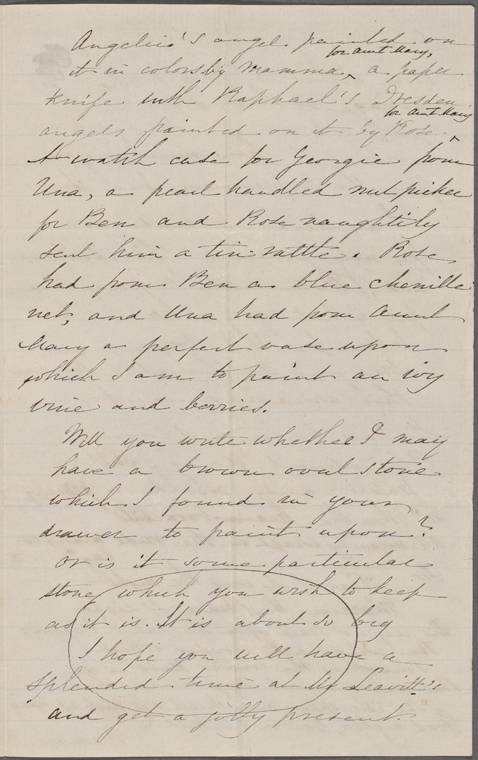 Angelico's angel painted on
for Aunt Mary,
it in colors by Mamma, a paper
knife with Raphael's Dresden
for Aunt Mary
angels painted on it by Rose.
A watch case for Georgie from
Una, a pearl handled nutpicker
for Ben and Rose naughtily
sent him a tin rattle. Rose
had from Ben a blue chenille
net, and Una had from Aunt
Mary a perfect vase upon
which I am to paint an ivy
vine and berries.
Will you write whether I may
have a brown oval stone
which I found in your
drawer to paint upon?
Or is it some particular
stone which you wish to keep
as it is. It is about so big
I hope you will have a
splendid time at Mr Leavitt's
and get a jolly present.